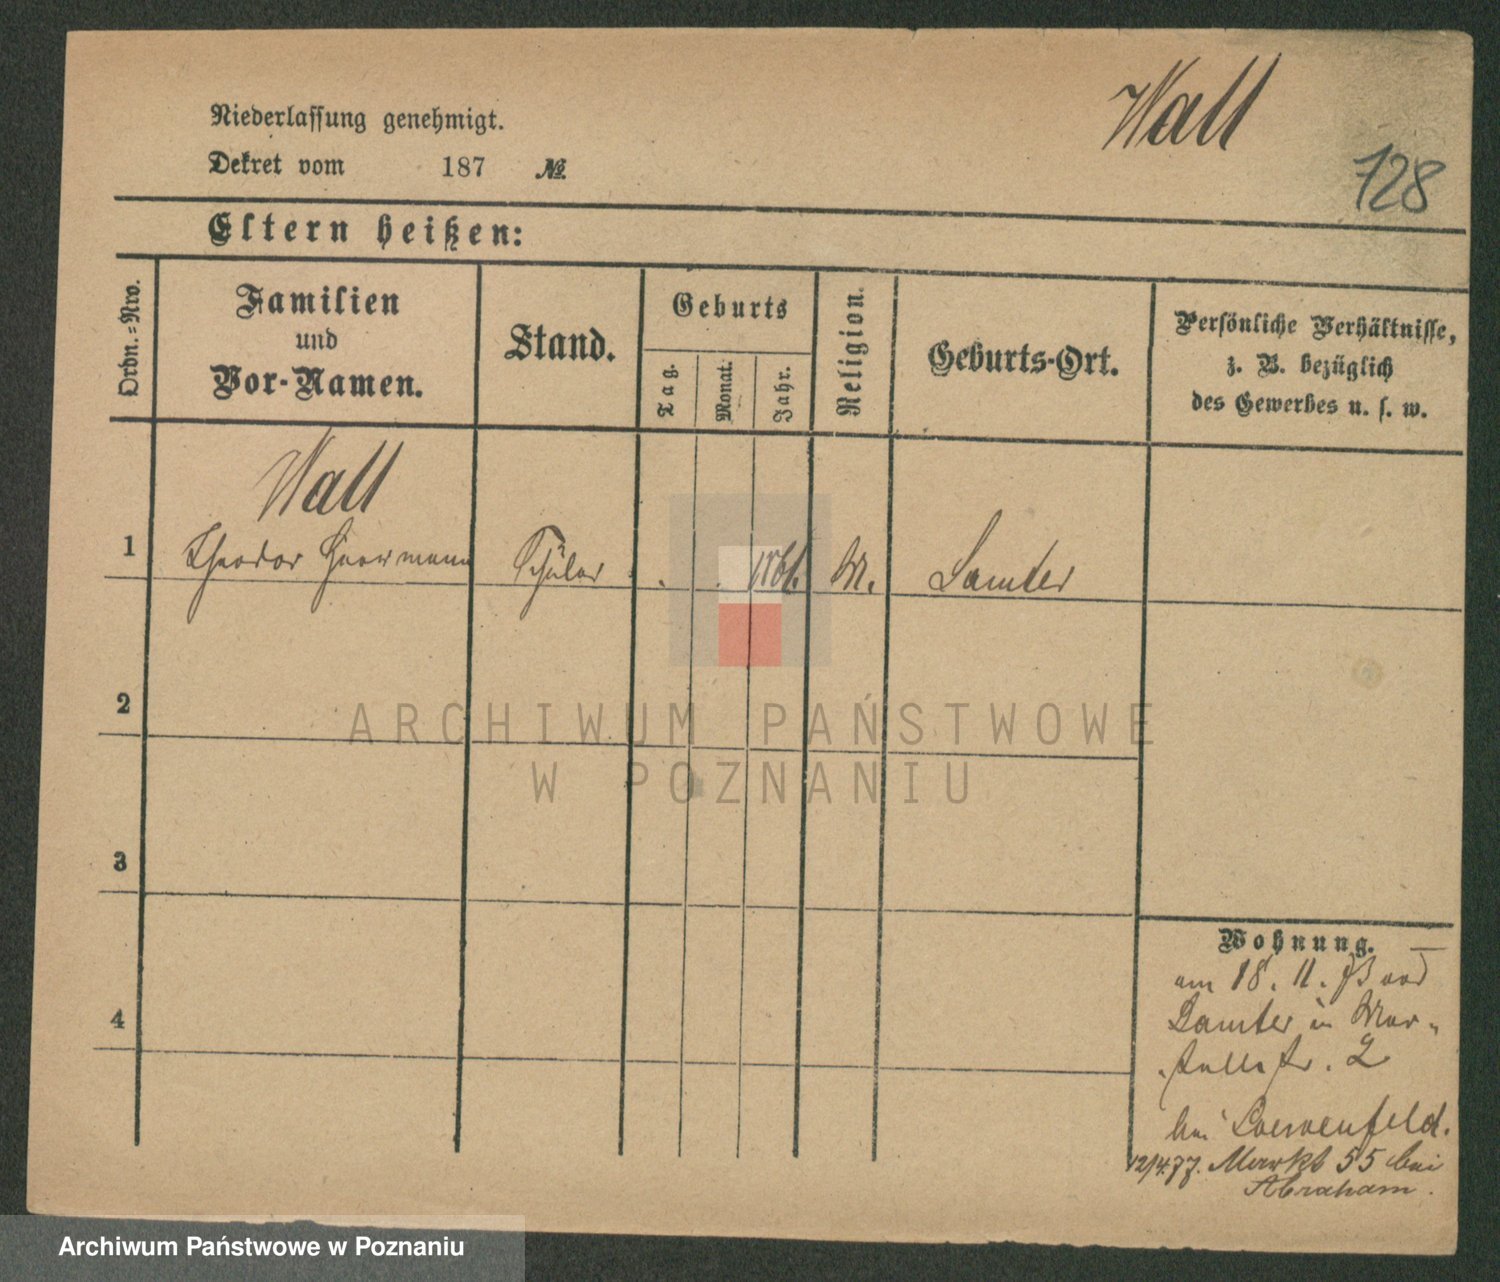 Niederlassung genehmigt.
Dekret vom 187 №
Wall
128
Eltern heißen:
Ordn.=Nro.
Familien
und
Vor-Namen.
Stand.
Geburts
Tag.
Monat.
Jahr.
Religion.
Geburts-Ort.
Persönliche Verhältnisse,
z. B. bezüglich
des Gewerbes u. s. w.
Wall
1 Theodor Herrmann Schüler 1861. M. Samter
2
3
4
Wohnung.
am 18. 11. von
Samter in Mar-
stallstr. 2
bei Loewenfeld.
12/4.77. Markt 55 bei
Abraham.
ARCHIWUM PAŃSTWOWE
W POZNANIU
Archiwum Państwowe w Poznaniu